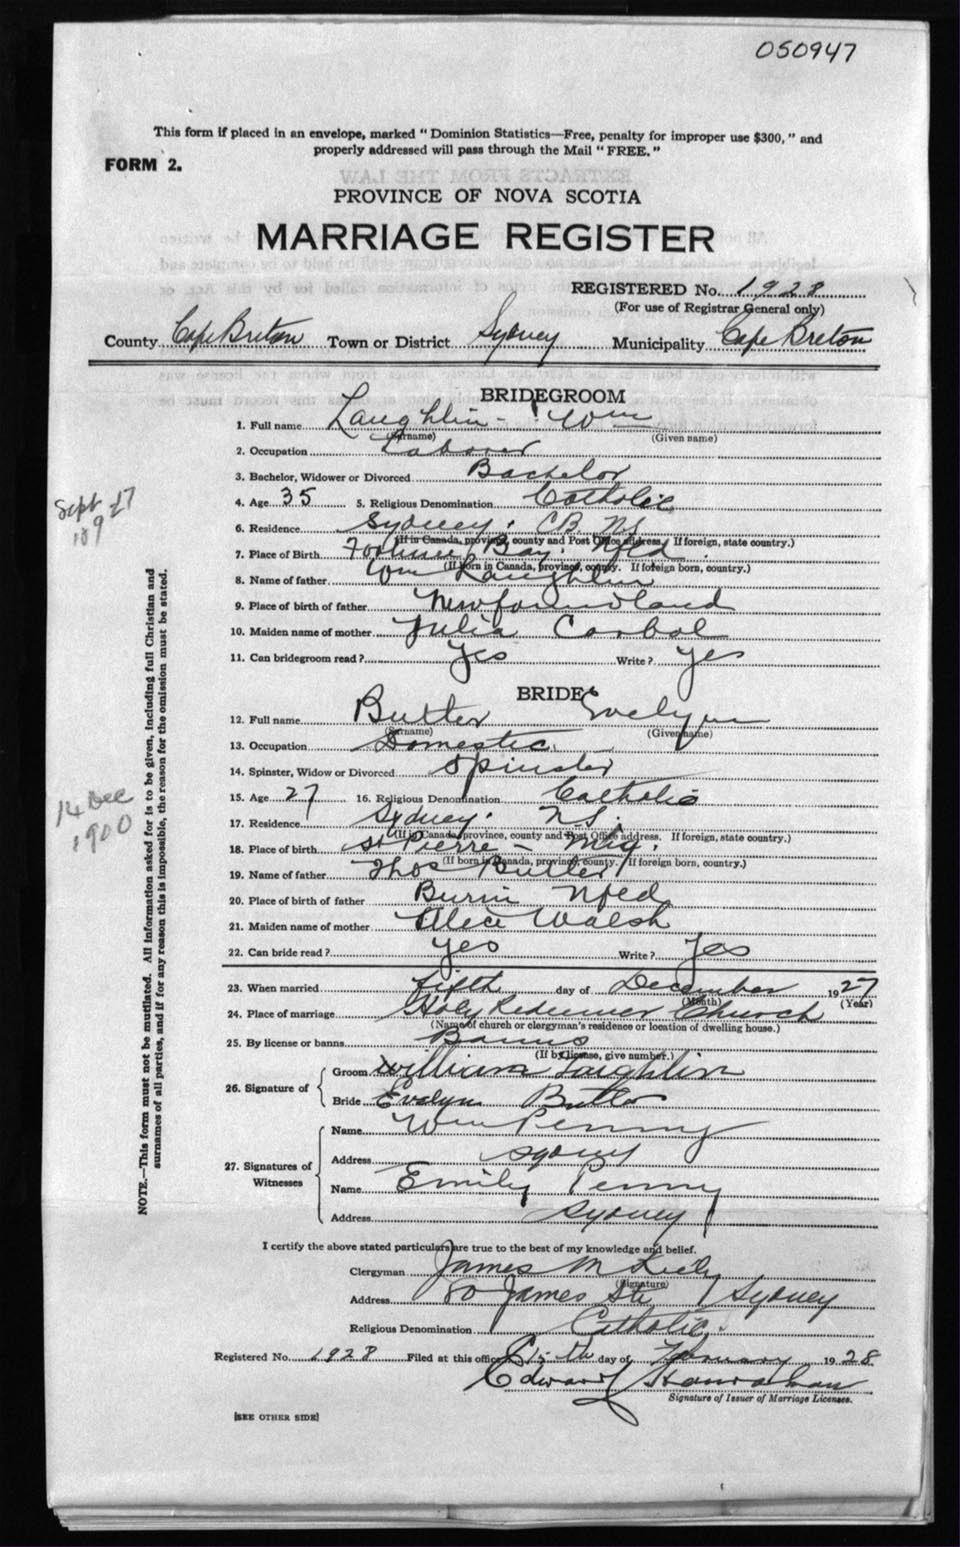 050947
This form if placed in an envelope, marked "Dominion Statistics—Free, penalty for improper use $300," and
properly addressed will pass through the Mail "FREE."
FORM 2.
PROVINCE OF NOVA SCOTIA
MARRIAGE REGISTER
REGISTERED No. 1928
(For use of Registrar General only)
County Cape Breton Town or District Sydney Municipality Cape Breton
BRIDEGROOM
1. Full name Laughlin - Wm
(Surname) (Given name)
2. Occupation Laborer
3. Bachelor, Widower or Divorced Bachelor
4. Age 35 5. Religious Denomination Catholic
6. Residence Sydney. CB NS
(If in Canada, province, county and Post Office address. If foreign, state country.)
7. Place of Birth Fortune Bay. Nfld
(If born in Canada, province, county. If foreign born, country.)
8. Name of father Wm Laughlin
9. Place of birth of father Newfoundland
10. Maiden name of mother Julia
11. Can bridegroom read? Yes Write? Yes
BRIDE
12. Full name Butler Evelyn
(Surname) (Given name)
13. Occupation Domestic
14. Spinster, Widow or Divorced Spinster
15. Age 27 16. Religious Denomination Catholic
17. Residence Sydney. N.S.
(If in Canada, province, county and Post Office address. If foreign, state country.)
18. Place of birth St Pierre - Miq.
(If born in Canada, province, county. If foreign born, country.)
19. Name of father Thos Butler
20. Place of birth of father Burin Nfld
21. Maiden name of mother Alice Walsh
22. Can bride read? Yes Write? Yes
23. When married Fifth day of December 1927
(Month) (Year)
24. Place of marriage Holy Redeemer Church
(Name of church or clergyman's residence or location of dwelling house.)
25. By license or banns Banns
(If by license, give number.)
26. Signature of
Groom William Laughlin
Bride Evelyn Butler
27. Signatures of Witnesses
Name Wm Penny
Address Sydney
Name Emily Penny
Address Sydney
I certify the above stated particulars are true to the best of my knowledge and belief.
Clergyman James M
(Signature)
Address 80 James Str Sydney
Religious Denomination Catholic.
Registered No. 1928 Filed at this office 15th day of February 1928
Edward Hanrahan
Signature of Issuer of Marriage Licenses.
[SEE OTHER SIDE]
Sept 17
189
14 Dec
1900
NOTE.—This form must not be mutilated. All information asked for is to be given, including full Christian and
surnames of all parties, and if for any reason this is impossible, the reason for the omission must be stated.